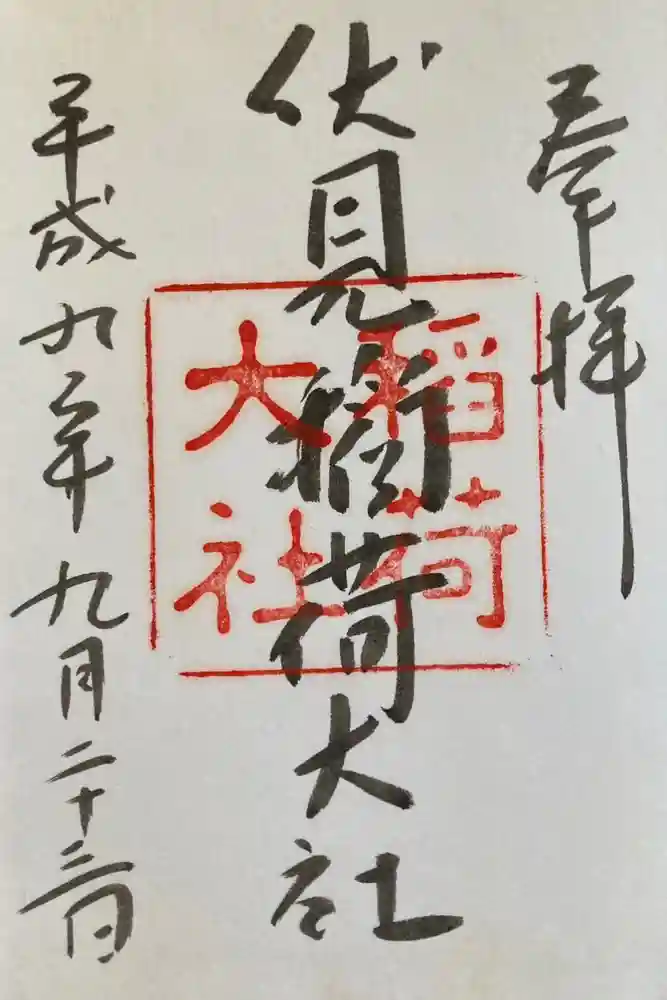 奉拝
伏見稲荷大社
稲荷
大社
平成九年九月二十三日